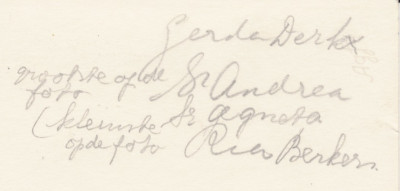 Gerda Derkx
grootste op de foto Sr Andrea
(kleinste op de foto Sr Agneta
Ria Berkers.